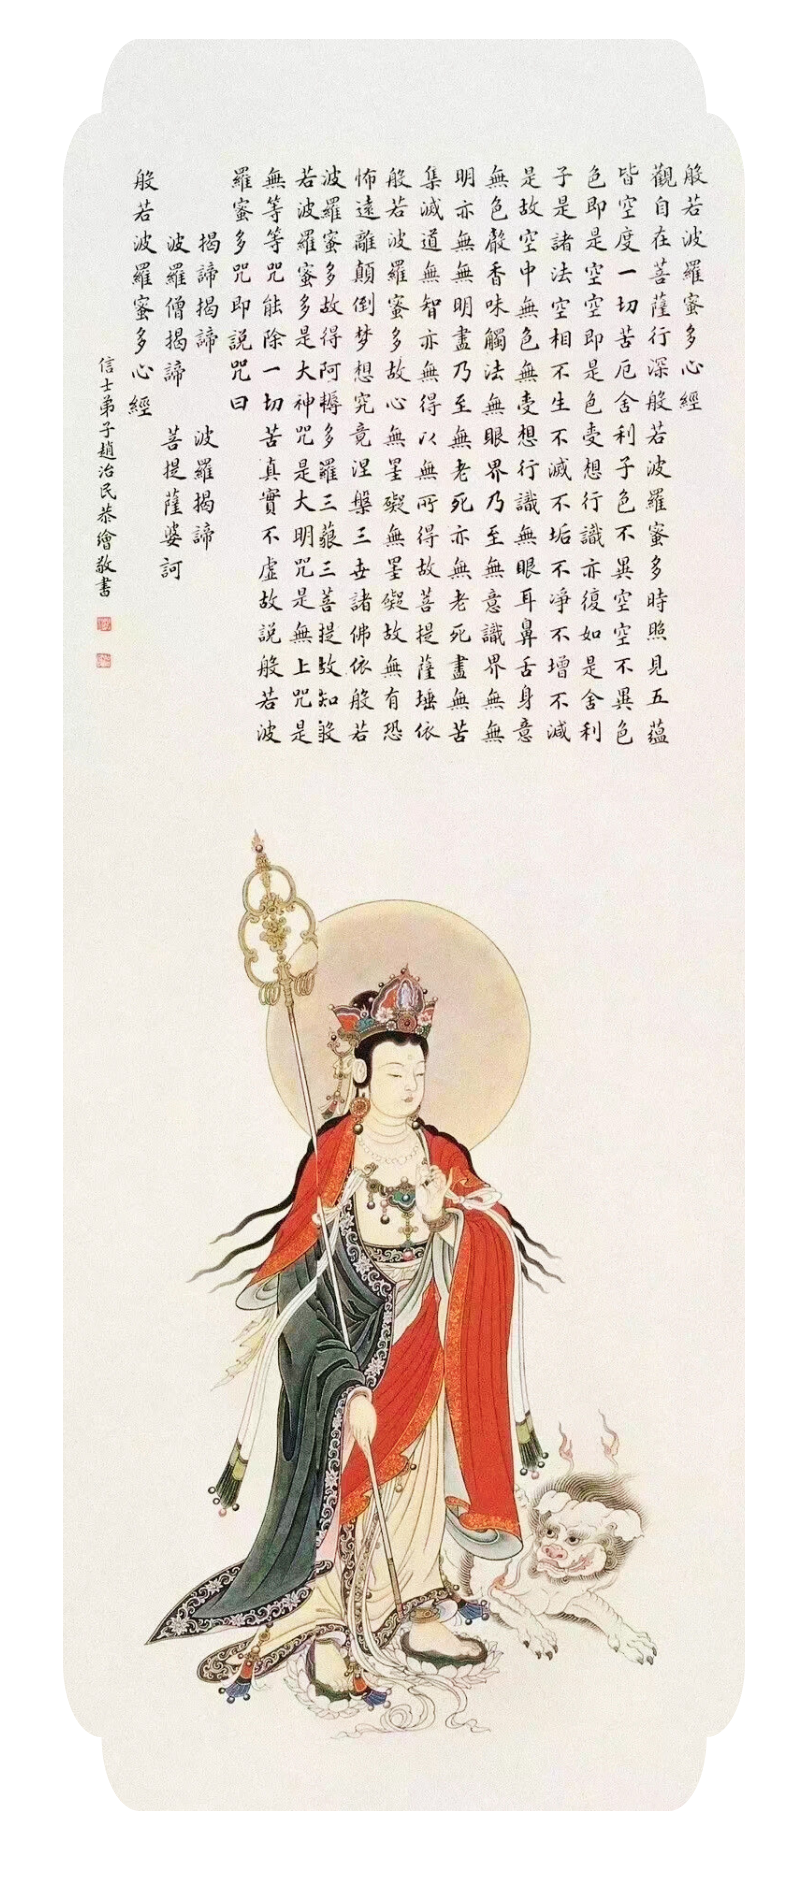 般若波羅蜜多心經
觀自在菩薩行深般若波羅蜜多時照見五蘊
皆空度一切苦厄舍利子色不異空空不異色
色即是空空即是色受想行識亦復如是舍利
子是諸法空相不生不滅不垢不淨不增不減
是故空中無色無受想行識無眼耳鼻舌身意
無色聲香味觸法無眼界乃至無意識界無無
明亦無無明盡乃至無老死亦無老死盡無苦
集滅道無智亦無得以無所得故菩提薩埵依
般若波羅蜜多故心無罣礙無罣礙故無有恐
怖遠離顛倒梦想究竟涅槃三世諸佛依般若
波羅蜜多故得阿耨多羅三藐三菩提故知般
若波羅蜜多是大神咒是大明咒是無上咒是
無等等咒能除一切苦真實不虛故說般若波
羅蜜多咒即說咒曰
揭諦揭諦 波羅揭諦
波羅僧揭諦 菩提薩婆訶
般若波羅蜜多心經
信士弟子趙治民恭繪敬書